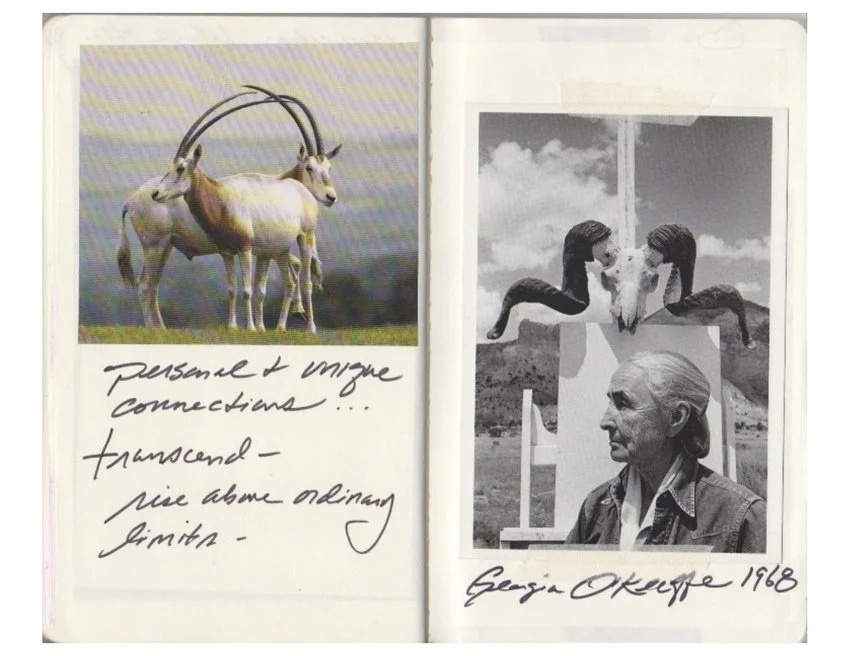 personal & unique
connections...
transcend -
rise above ordinary
limits -
Georgia O'Keeffe 1968